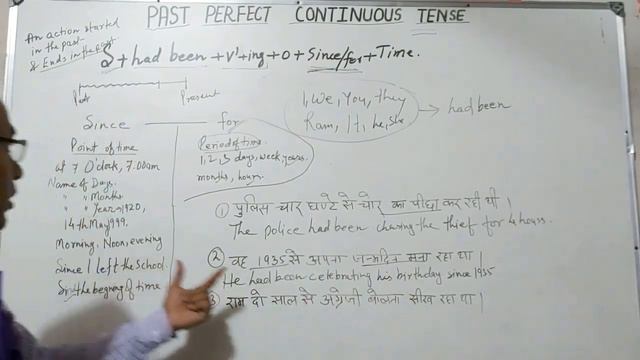 PAST PERFECT CONTINUOUS TENSE
An action started
in the past
& Ends in the past
S + had been + V¹ + ing + O + Since/for + Time.
Past Present
I, We, You, they
Ram, It, he, She → had been
Since for
Point of time
at 7 O'clock, 7.00am
Name of Days.
" " Months
" " Year = 1920,
14th May 1999.
Morning, Noon, evening
Since I left the School.
Since the begning of time
Period of time.
1, 2, 3 days, week, years.
months, hours.
① पुलिस चार घण्टे से चोर का पीछा कर रही थी |
The police had been chasing the thief for 4 hours.
② वह 1935 से अपना जन्मदिन मना रहा था |
He had been celebrating his birthday since 1935
③ राम दो साल से अंग्रेजी बोलना सीख रहा था |